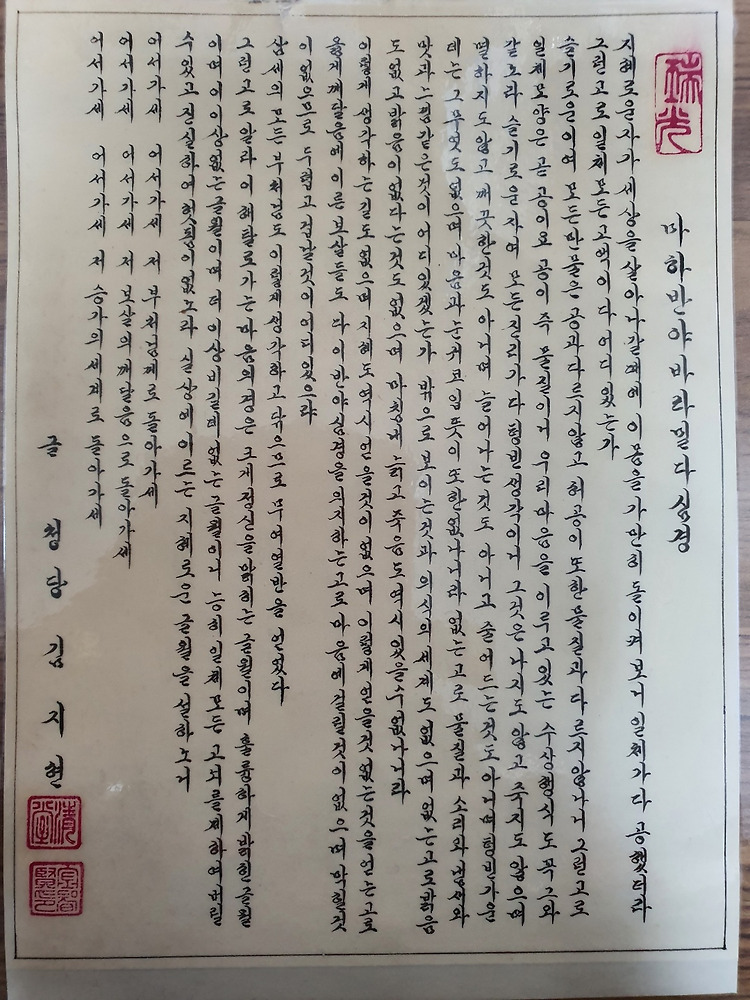 瑞光
마하반야바라밀다심경
지혜로운자가 세상을 살아나갈제에 이몸을 가만히 돌이켜보니 일체가다 공했더라
그런고로 일체 모든 고액이 다 어디 있는가
슬기로운이여 모든만물은 공과다르지않고 허공이 또한 물질과 다르지 않나니 그런고로
일체모양은 곧 공이요 공이 즉 물질이니 우리마음을 이루고있는 수상행식도 꼭 그와
같노라 슬기로운자여 모든진리가 다 텅빈생각이니 그것은 나지도 않고 죽지도 않으며
멸하지도않고 깨끗한것도 아니며 늘어나는것도 아니고 줄어드는것도아니며 텅빈가운
데는 그무엇도없으며 마음과눈귀코입뜻이 또한없나니라 없는고로 물질과 소리와 냄새와
맛과 느낌같은것이 어디있겠는가 밖으로 보이는것과 의식의세계도 없으며 없는고로밝음
도없고밝음이없다는것도없으며 마침내 늙고 죽음도역시있을수없나니라
이렇게 생각하는길도없으며 지혜도역시 얻을것이 없으며 이렇게얻을것없는것을얻는고로
옳게깨달음에 이른 보살들도 다 이반야심경을 의지하는고로 마음에 걸릴것이 없으며 막힐것
이 없으므로 두렵고 겁날것이 어디 있으랴
삼세의 모든 부처님도 이렇게생각하고 닦으므로 무여열반을 얻었다
그런고로알라 이 해탈로가는 마음의경은 크게정신을밝히는 글월이며 훌륭하게밝힌글월
이며 이 이상없는글월이며 더 이상비길데 없는글월이니 능히일체모든 고뇌를제하여버릴
수있고 진실하여 헛됨이 없노라 실상에이르는 지혜로운 글월을 설하노니
어서가세 어서가세 저 부처님께로 돌아가세
어서가세 어서가세 저 보살의깨달음으로돌아가세
어서가세 어서가세 저 승가의세계로 돌아가세
글 청당 김지현
清堂